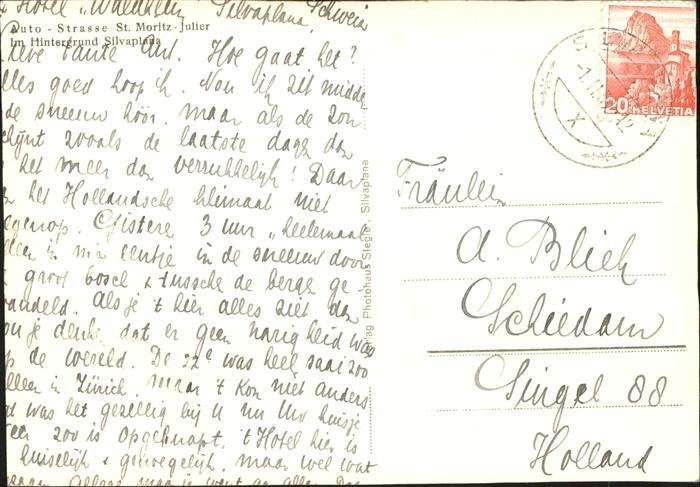 Hotel "Waldheim" Silvaplana, Schweiz
Auto - Strasse St. Moritz - Julier
Im Hintergrund Silvaplana
lieve Tante Hoe gaat het?
alles goed hoop ik. Nou ik zit midden
de sneeuw hoor. maar als de zon
schijnt zooals de laatste dagen dan
het meer dan verrukkelijk! Daar
het Hollandsche klimaat niet
tegenop. Gistere 3 uur heelemaal
alleen in m'n eentje in de sneeuw door
groot bosch & tussche de berge ge-
wandeld. Als je 't hier alles ziet dan
zou je denke dat er geen narigheid was
op de wereld. De was heel saai zoo
alleen in Zürich. maar 't kon niet anders
wat was het gezellig bij U nu Uw huisje
weer zoo is opgeknapt. 't Hotel hier is
huiselijk & genoegelijk. maar wel wat
Verlag Photohaus Stegle, Silvaplana
20 HELVETIA
X
Fräulein
A. Bliek
Schiedam
Singel 88
Holland